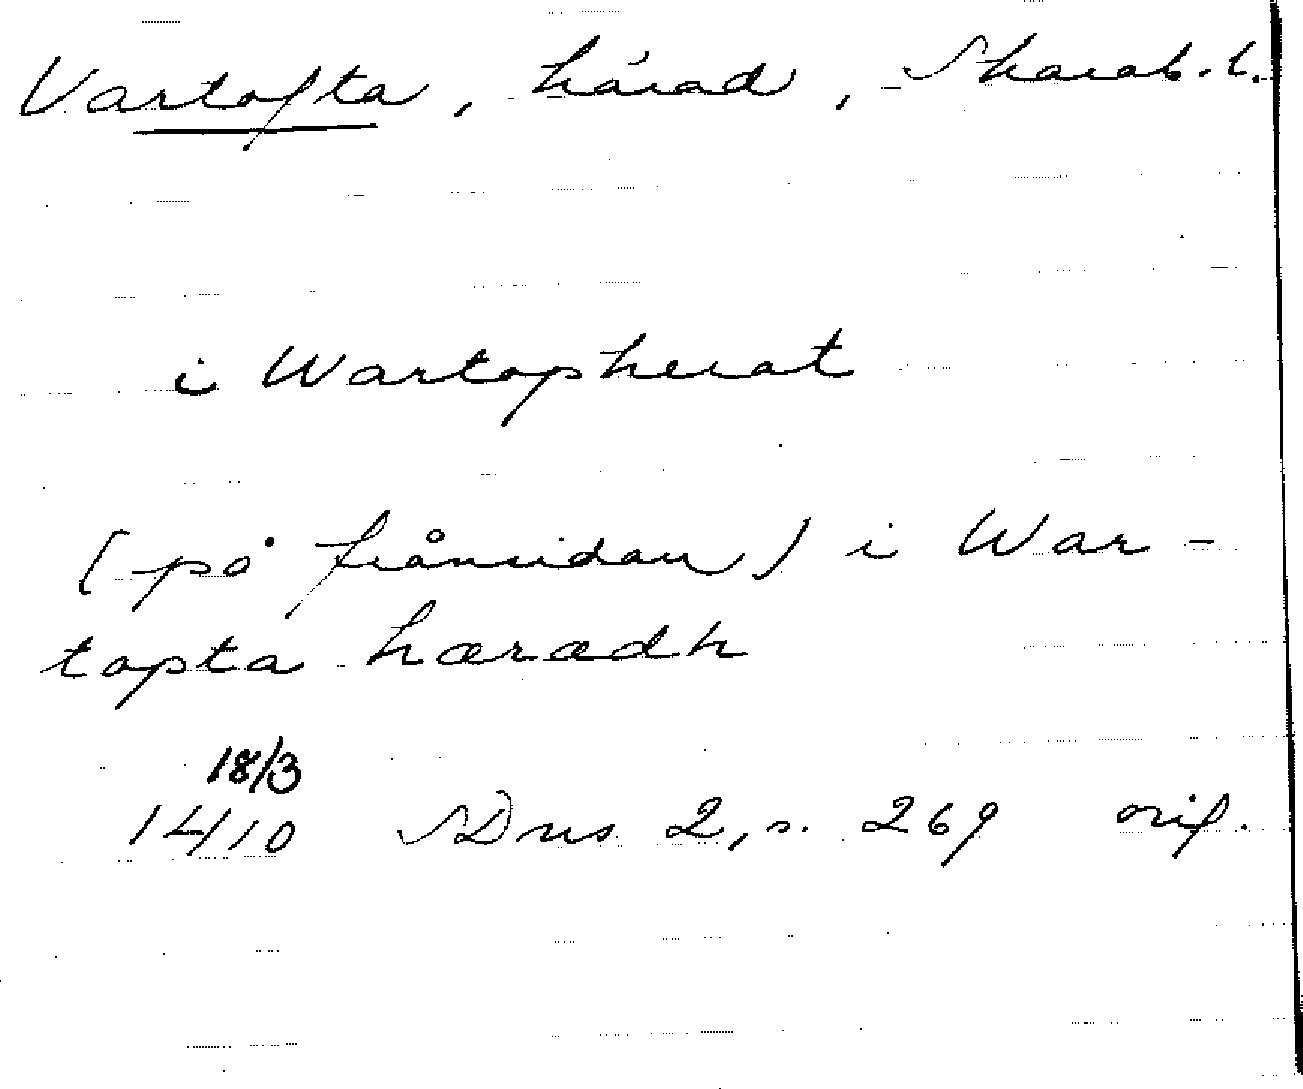 Vartofta, härad, Skarab. l.
i Wartopherat
(på frånsidan) i War-
topta hæradh
18/3
1410 SDns 2, s. 269 orig.